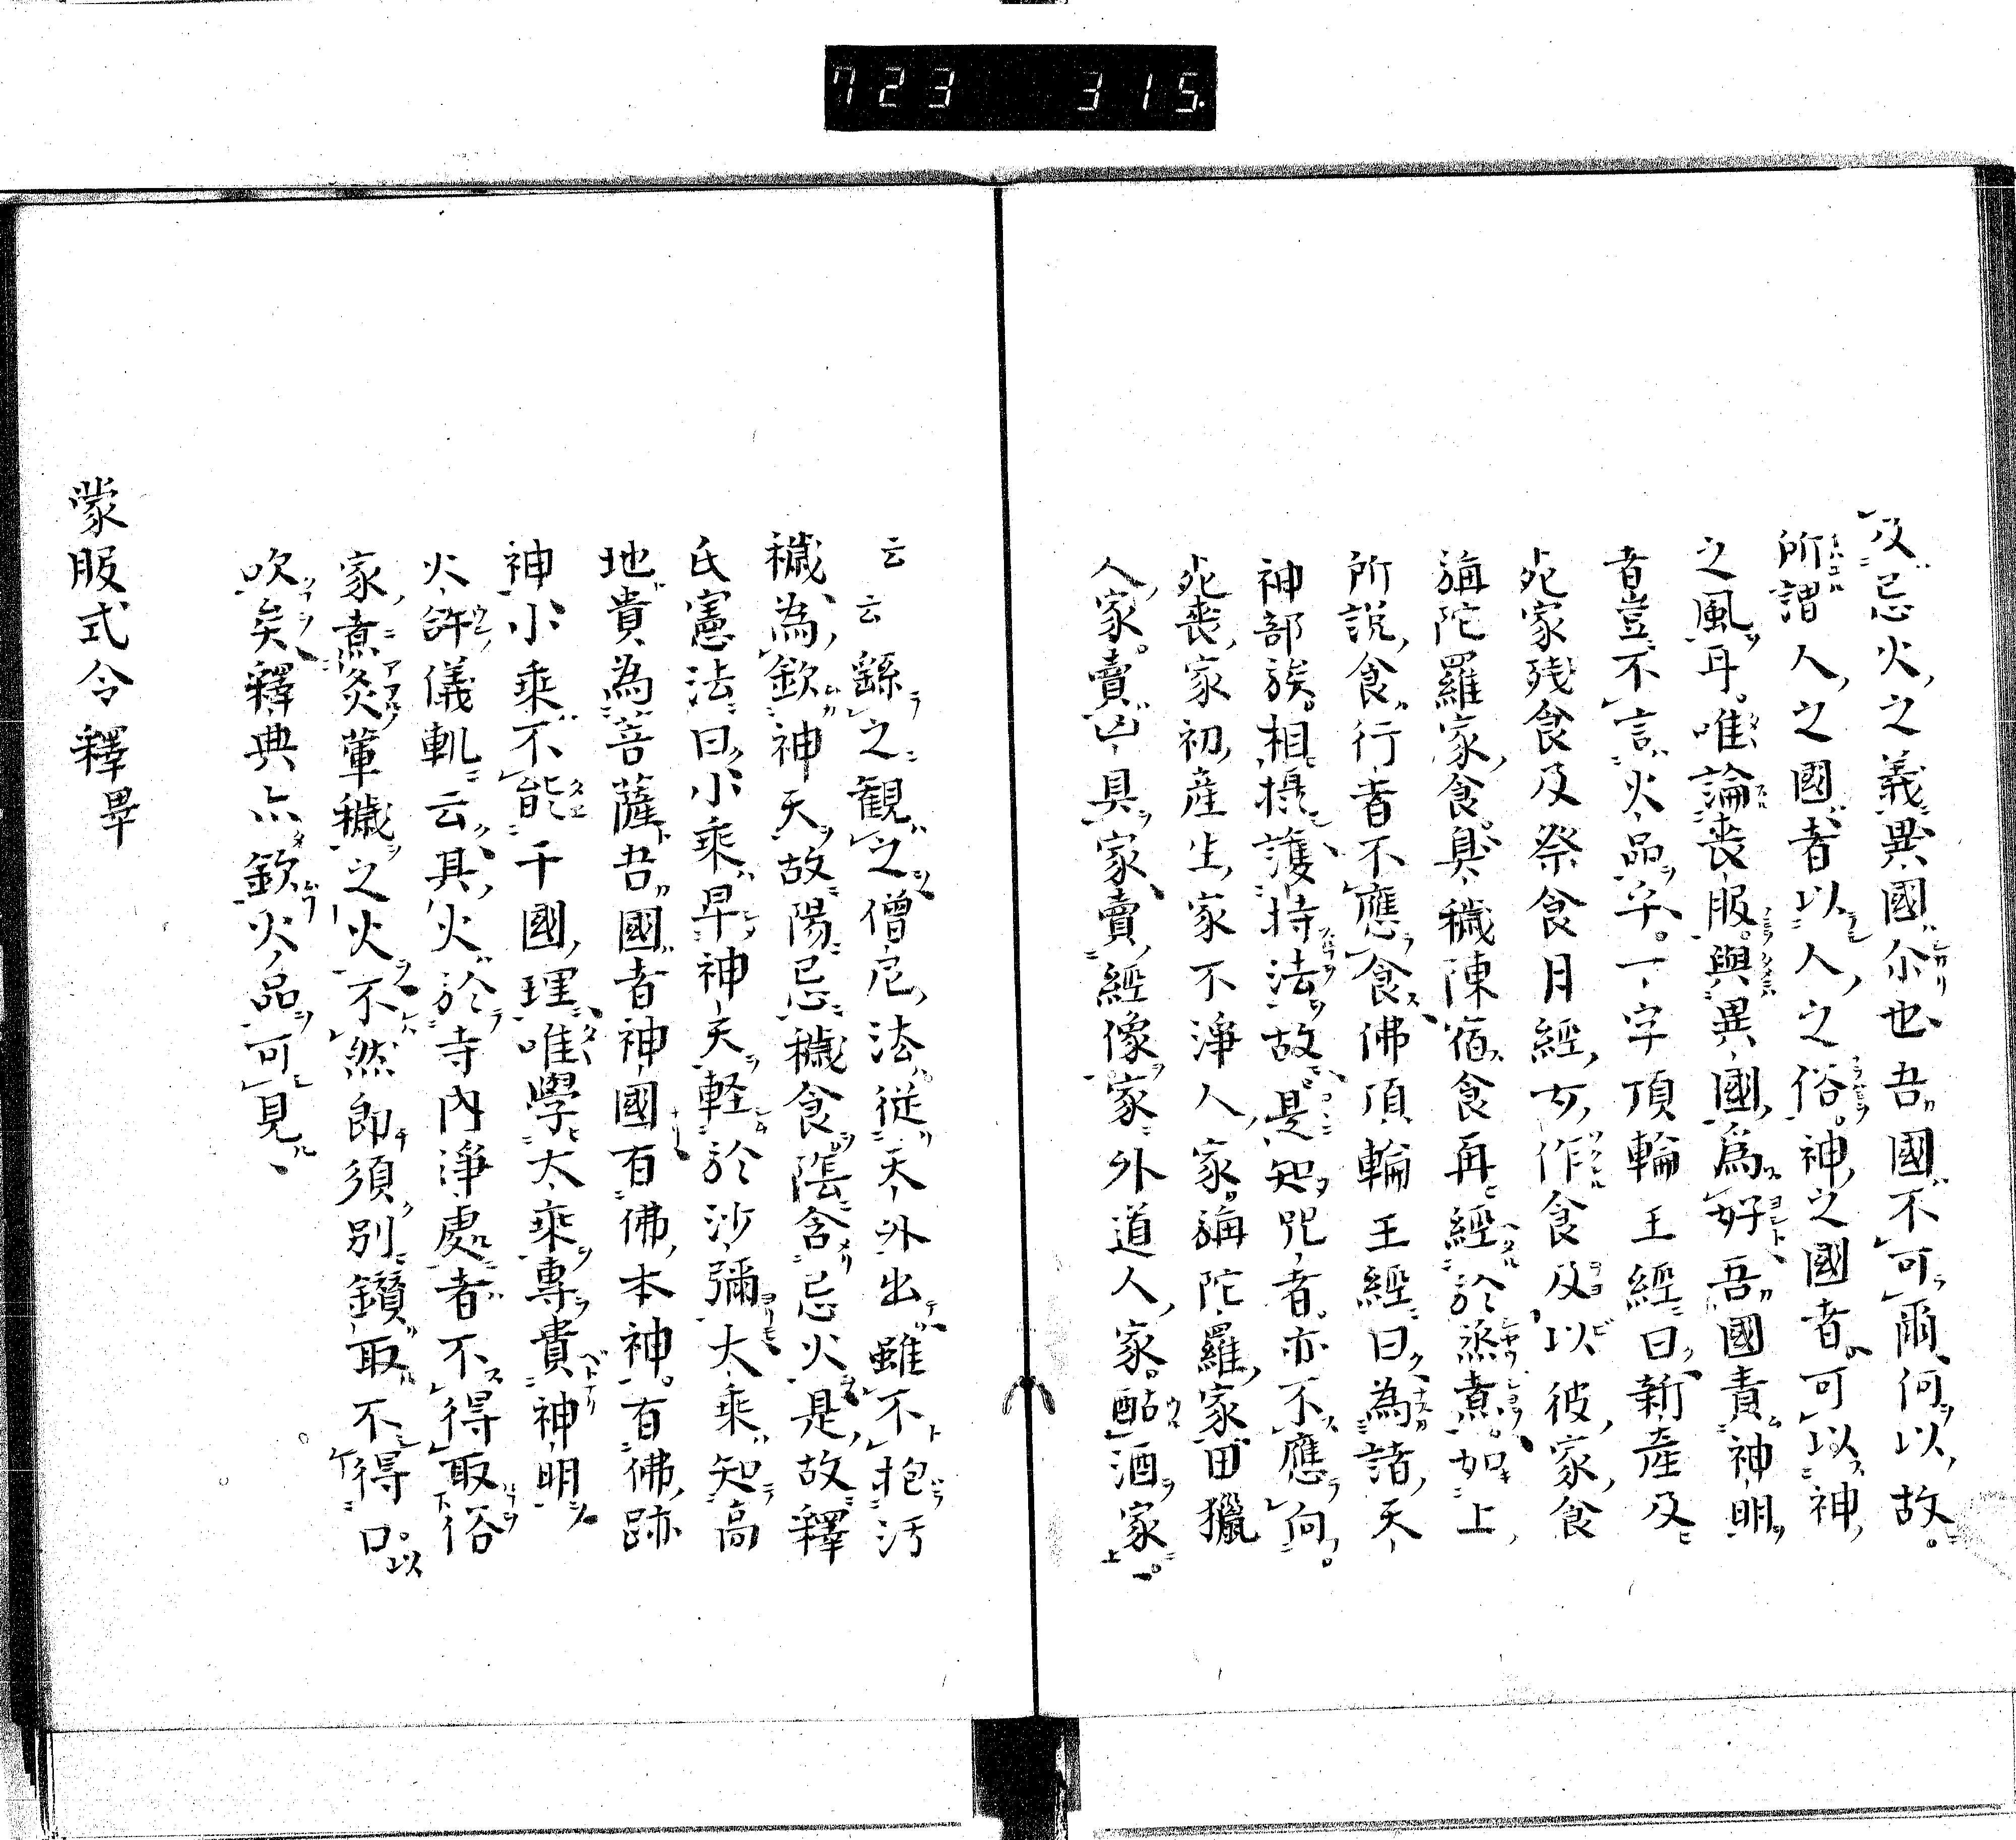 723 315.
及忌火之義異國尓也吾國不可爾何以故
所謂人之國者以人之俗神之國者可以神
之風耳唯論喪服與異國為好吾國責神明
者豈不言火品乎一字頂輪王經曰新產及
死家残食及祭食月經女作食及以彼家食
旃陀羅家食臭穢陳宿食再經於蒸煮如上
所説食行者不應食佛頂輪王經曰為諸天
神部族相摂護持法故是知咒者亦不應向
死喪家初産生家不淨人家旃陀羅家田獵
人家賣凶具家賣經像家外道人家酤酒家
云云繇之観之僧尼法従天外出雖不抱汚
穢為欽神天故陽忌穢食陰含忌火是故釋
氏憲法曰小乘早神天軽於沙彌大乘知高
地貴為菩薩吾國者神國有佛本神有佛跡
神小乘不能千國理唯學大乘專貴神明
火許儀軌云其火於寺内淨處者不得取俗
家煮炙葷穢之火不然即須別鑚取不得口以
吹矣釋典亦欽火品可見
蒙服式令釋畢